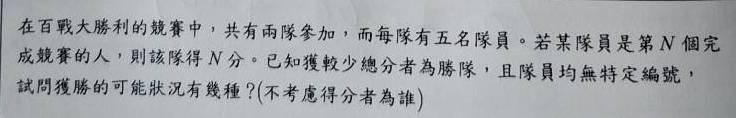 在百戰大勝利的競賽中，共有兩隊參加，而每隊有五名隊員。若某隊員是第 N 個完
成競賽的人，則該隊得 N 分。已知獲較少總分者為勝隊，且隊員均無特定編號，
試問獲勝的可能狀況有幾種？(不考慮得分者為誰)